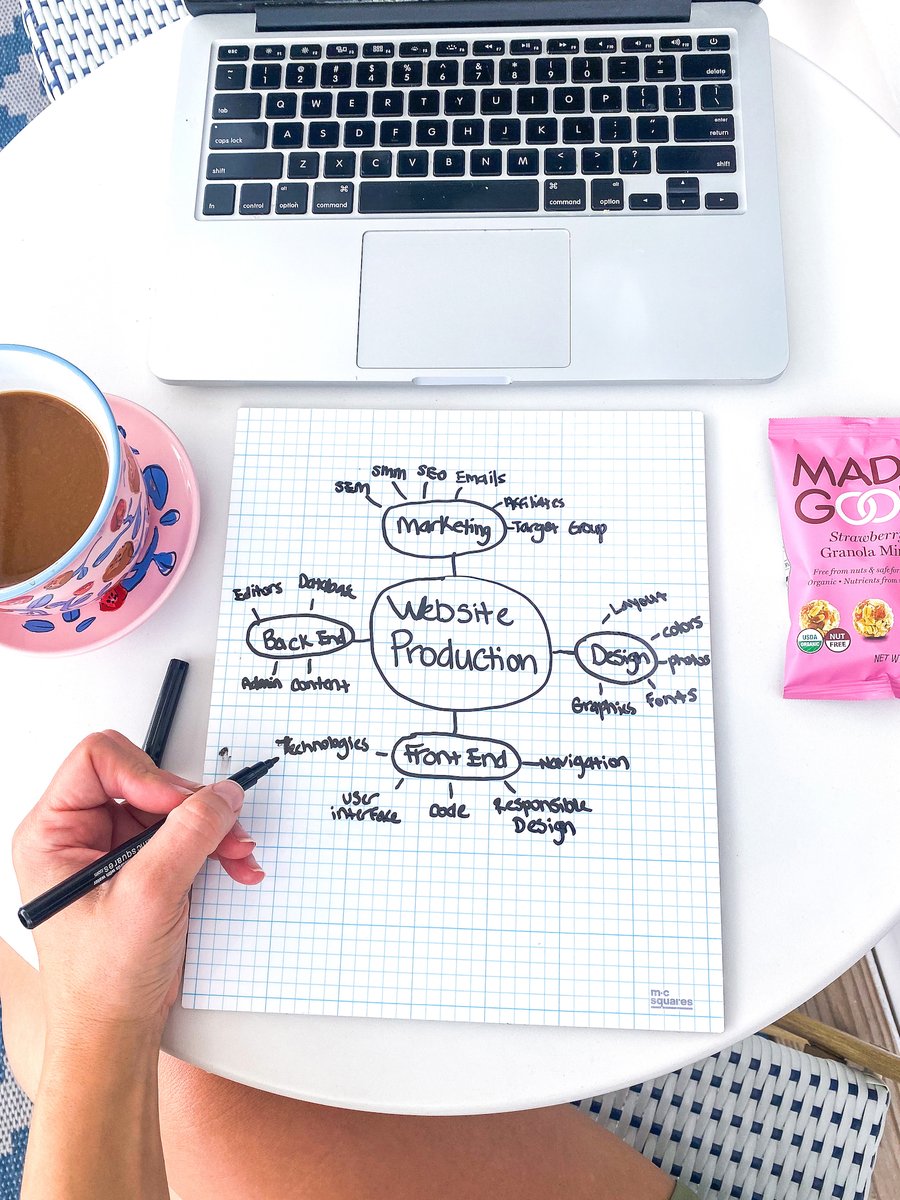 esc F1 F2 F3 F4 F5 F6 F7 F8 F9 F10 F11 F12
~ ! @ # $ % ^ & * ( ) _ + delete
` 1 2 3 4 5 6 7 8 9 0 - =
tab Q W E R T Y U I O P { } |
[ ] \
caps lock A S D F G H J K L : " enter
; ' return
shift Z X C V B N M < > ? shift
, . /
fn control alt option ⌘ command ⌘ command alt option
SEM SMM SEO Emails
Affiliates
Marketing Target Group
Editors Database
Back End
Admin Content
Website
Production
Layout
colors
Design photos
Graphics Fonts
Technologies Front End Navigation
user
interface
Code
Responsible
Design
m·c
squares
squares.com
MAD
GOO
Strawberry
Granola Mi
Free from nuts & safe for
Organic • Nutrients from
USDA
ORGANIC
NUT
FREE
NET W